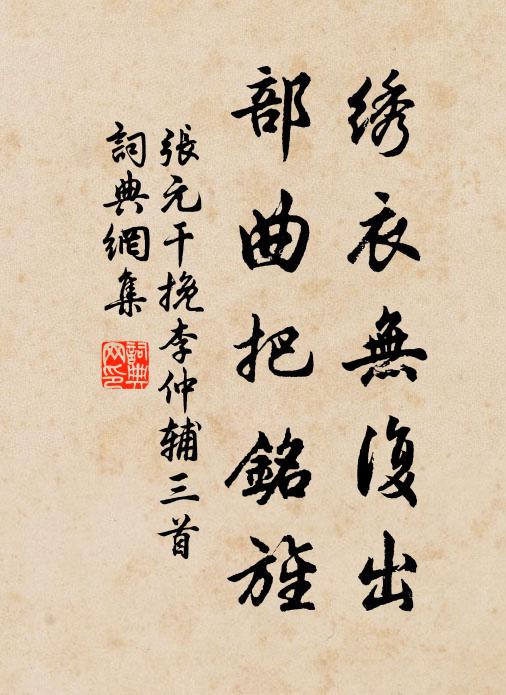 绣衣無復出
部曲把銘旌
張元干挽李仲辅三首
詞典網集
詞典网印